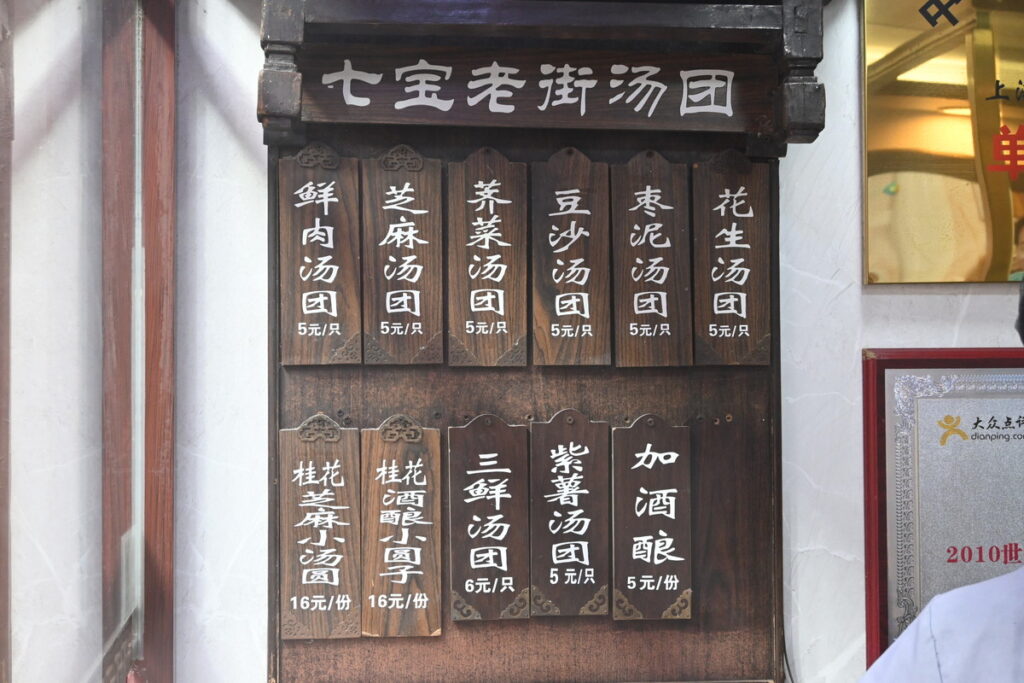 七宝老街汤团
鲜肉汤团
5元/只
芝麻汤团
5元/只
荠菜汤团
5元/只
豆沙汤团
5元/只
枣泥汤团
5元/只
花生汤团
5元/只
桂花
芝麻小汤圆
16元/份
桂花
酒酿小圆子
16元/份
三鲜汤团
6元/只
紫薯汤团
5元/只
加酒酿
5元/份
中
上海
单
大众点评
dianping.co
2010世